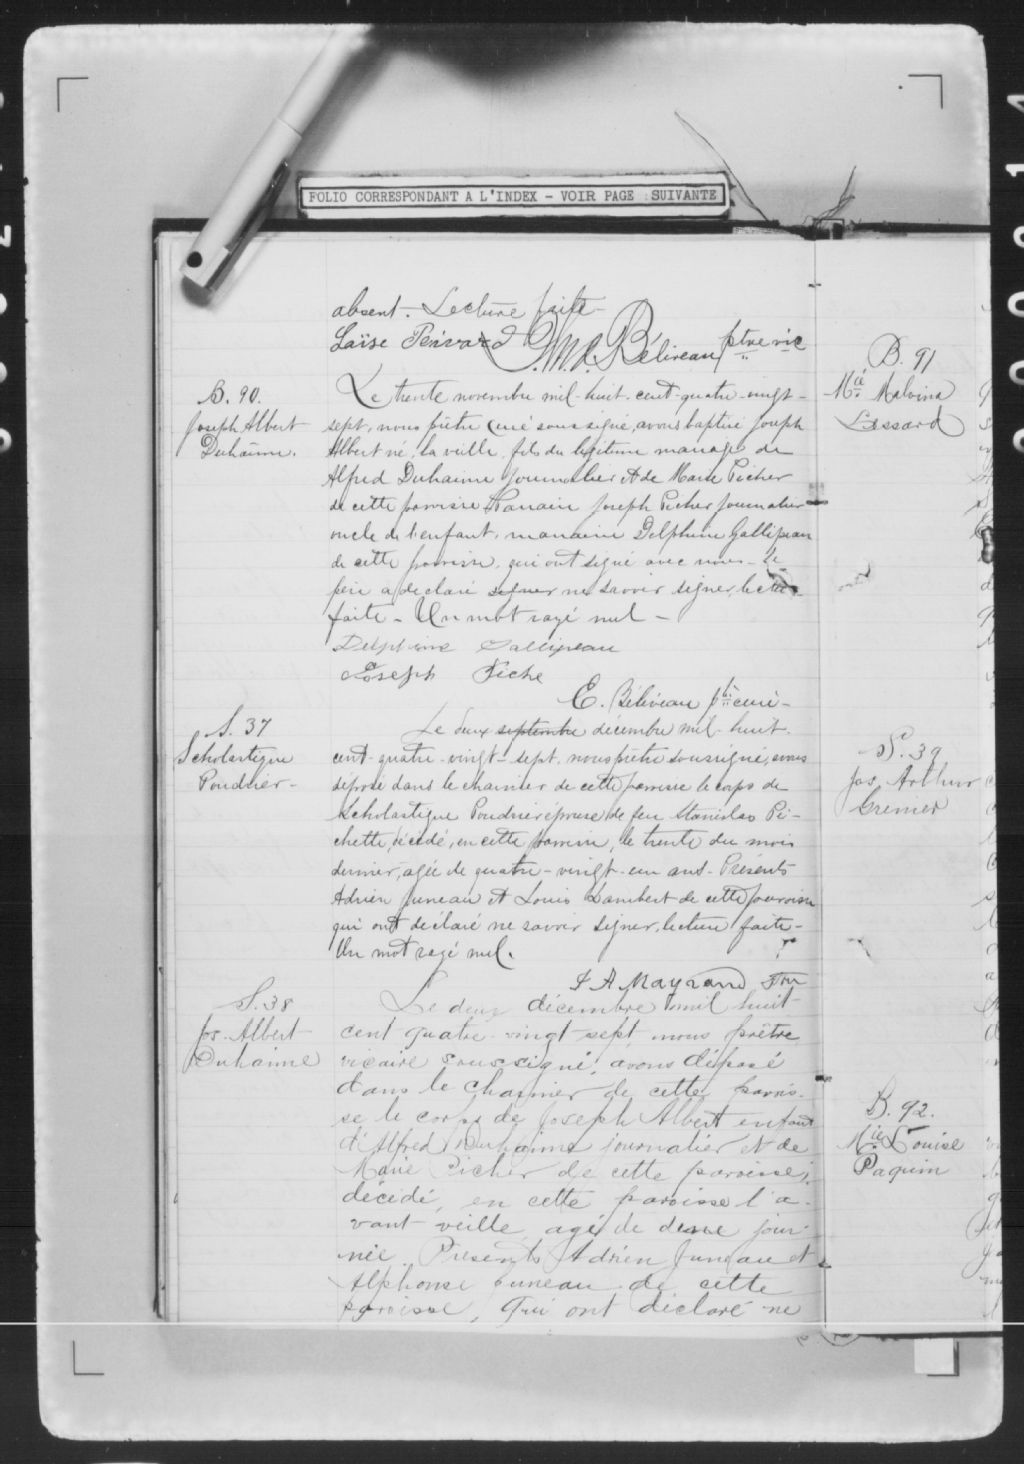 FOLIO CORRESPONDANT A L'INDEX - VOIR PAGE SUIVANTE
absent. Lecture faite
ptre vic
B. 90.
Joseph Albert
Duhaime.
Le trente novembre mil-huit-cent-quatre-vingt-
sept, nous prêtre curé soussigné, avons baptisé Joseph
Albert né la veille, fils du légitime mariage de
Alfred Duhaime journalier et de Marie Picher
de cette paroisse Parrain Joseph Picher journalier
oncle de l'enfant, marraine Delphine Gallipeau
de cette paroisse, qui ont signé avec nous. Le
père a déclaré signer ne savoir signer, lecture
faite - Un mot rayé nul -
Delphine Gallipeau
Joseph Piche
E. Béliveau ptre curé -
S. 37
Scholastique
Poudrier -
Le deux septembre décembre mil-huit-
cent-quatre-vingt-sept, nous prêtre soussigné, avons
déposé dans le charnier de cette paroisse le corps de
Scholastique Poudrier épouse de feu Stanislas Pi-
chette, décédé, en cette paroisse, le trente du mois
dernier, agée de quatre-vingt-un ans. Présents
Adrien Juneau et Louis Lambert de cette paroisse
qui ont déclaré ne savoir signer, lecture faite -
Un mot rayé nul.
J A Mayrand Ptre
S. 38
Jos. Albert
Duhaime
Le deux décembre mil huit
cent quatre-vingt sept nous prêtre
vicaire soussigné, avons déposé
dans le charnier de cette parois-
se le corps de Joseph Albert enfant
d'Alfred Duhaime journalier et de
Marie Picher de cette paroisse,
décédé, en cette paroisse l'a-
vant veille agé de demie jour-
née. Présents Adrien Juneau et
Alphonse Juneau de cette
paroisse, qui ont déclaré ne
B. 91
Mie Malvina
Lessard
S. 39
Jos. Arthur
Grenier
B. 92.
Mie Louise
Paquin